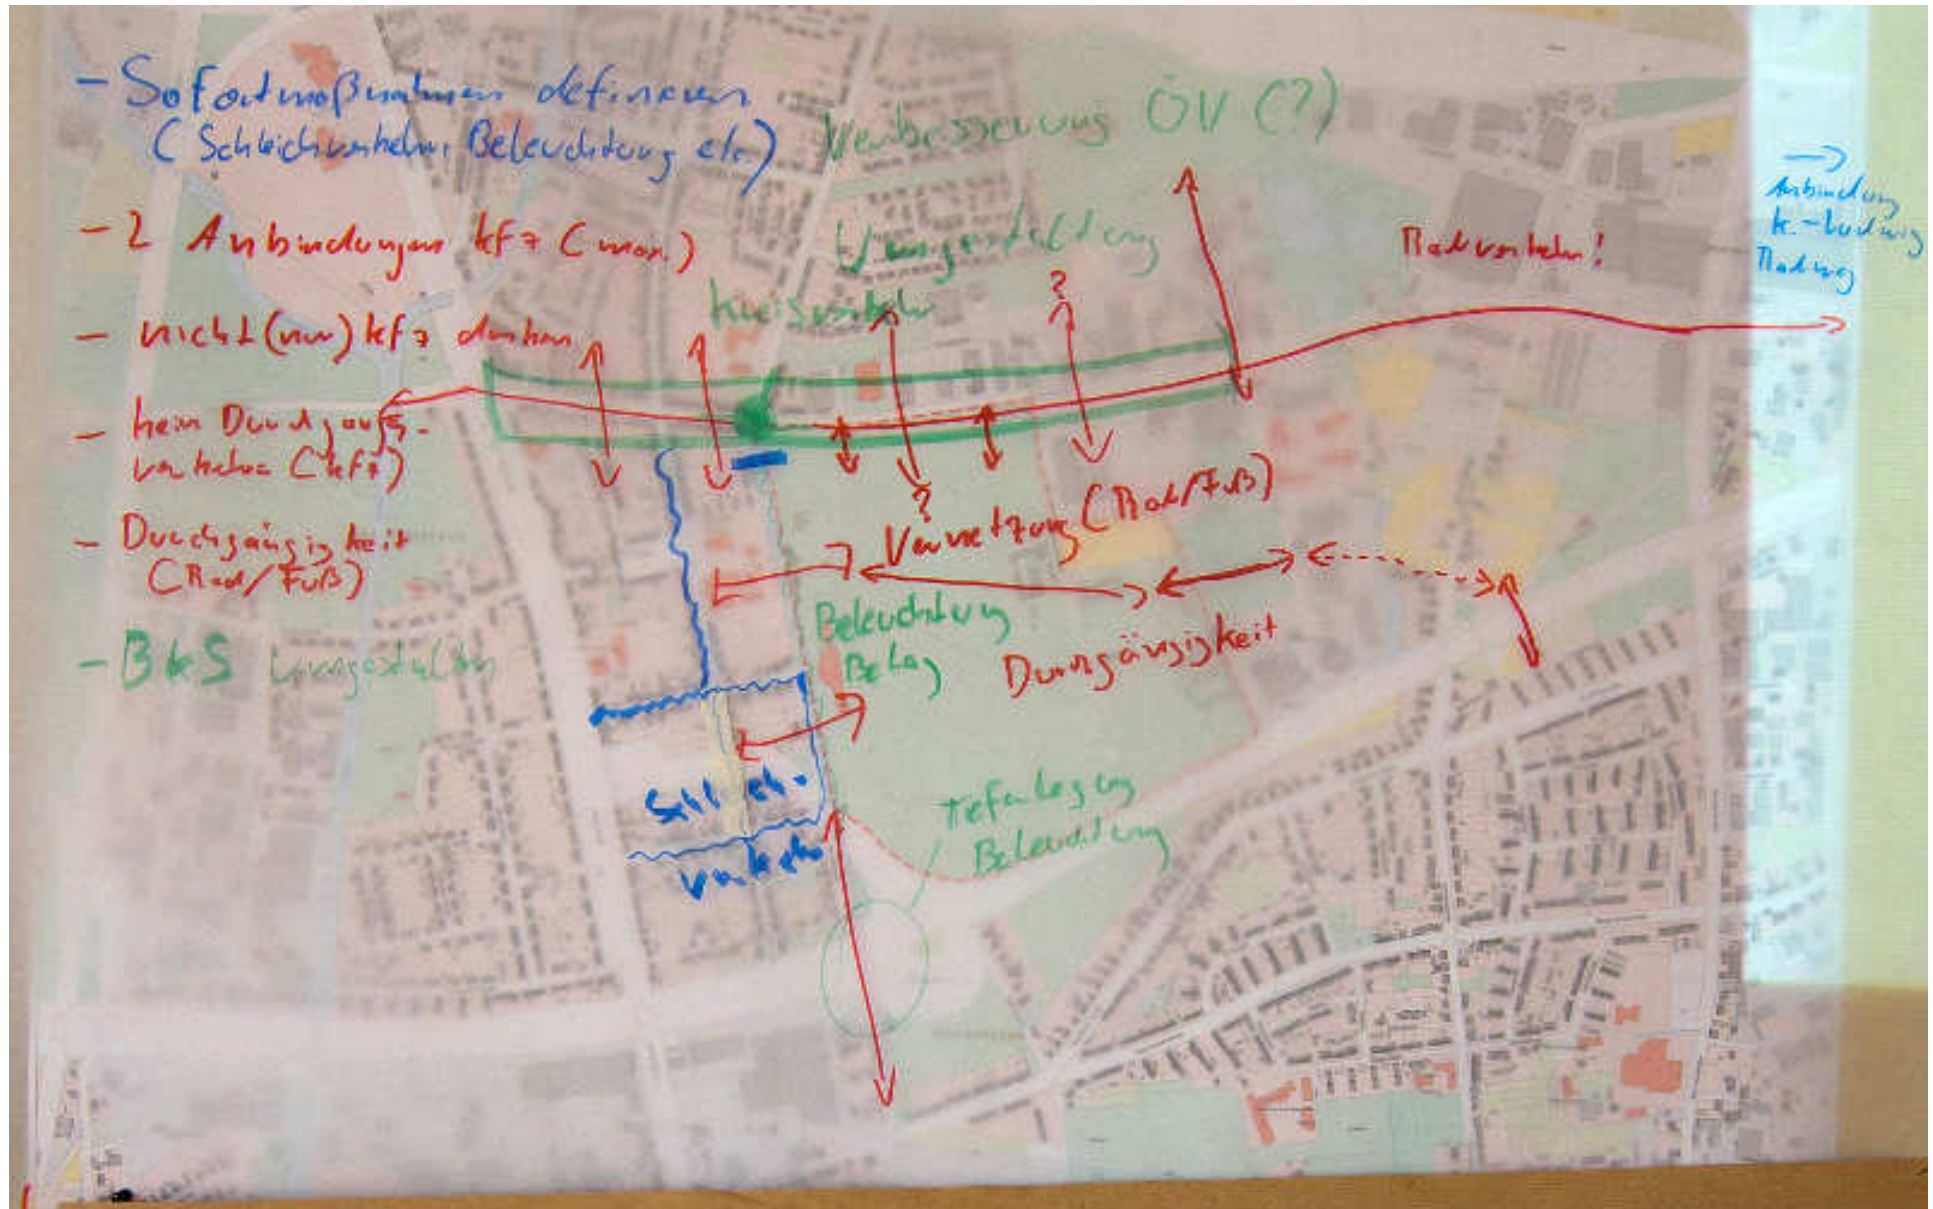 - Sofortmaßnahmen definieren
(Schleichverkehr, Beleuchtung etc.)
- 2 Anbindungen Kfz (max.)
- nicht (nur) Kfz denken
- kein Durchgangs-
verkehr (Kfz)
- Durchgängigkeit
(Rad/Fuß)
- B&S umgestalten
Verbesserung ÖV (?)
Umgestaltung
Kreisverkehr
?
Radverkehr!
Anbindung
K.-Ludwig
Radweg
?
Vernetzung (Rad/Fuß)
Beleuchtung
Belag
Durngängigkeit
Schleich-
verkehr
Tieferlegung
Beleuchtung